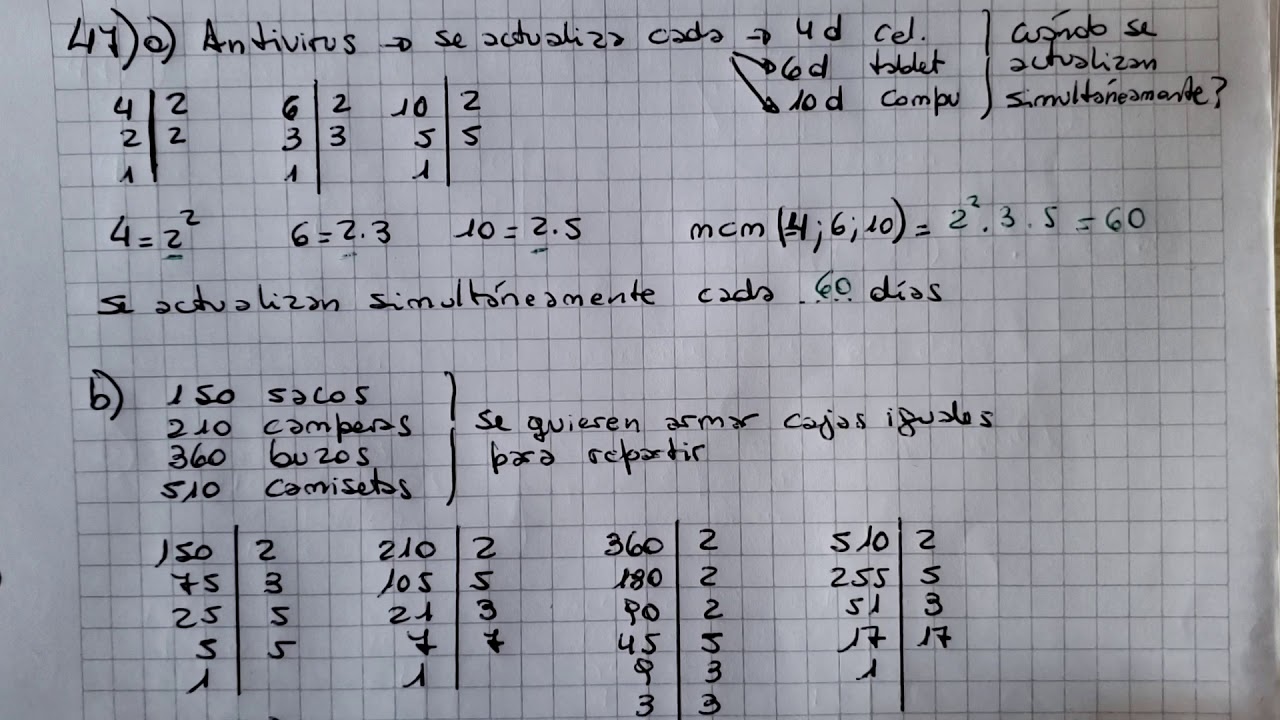 47) a) Antivirus → se actualiza cada → 4 d cel. cuándo se
6 d tablet actualizan
10 d compu simultáneamente?
4 | 2 6 | 2 10 | 2
2 | 2 3 | 3 5 | 5
1 | 1 | 1 |
4 = 2² 6 = 2.3 10 = 2.5 mcm (4; 6; 10) = 2².3.5 = 60
se actualizan simultáneamente cada .60. días
b) 150 sacos
210 camperas se quieren armar cajas iguales
360 buzos para repartir
510 camisetas
150 | 2 210 | 2 360 | 2 510 | 2
75 | 3 105 | 5 180 | 2 255 | 5
25 | 5 21 | 3 90 | 2 51 | 3
5 | 5 7 | 7 45 | 5 17 | 17
1 | 1 | 9 | 3 1 |
3 | 3